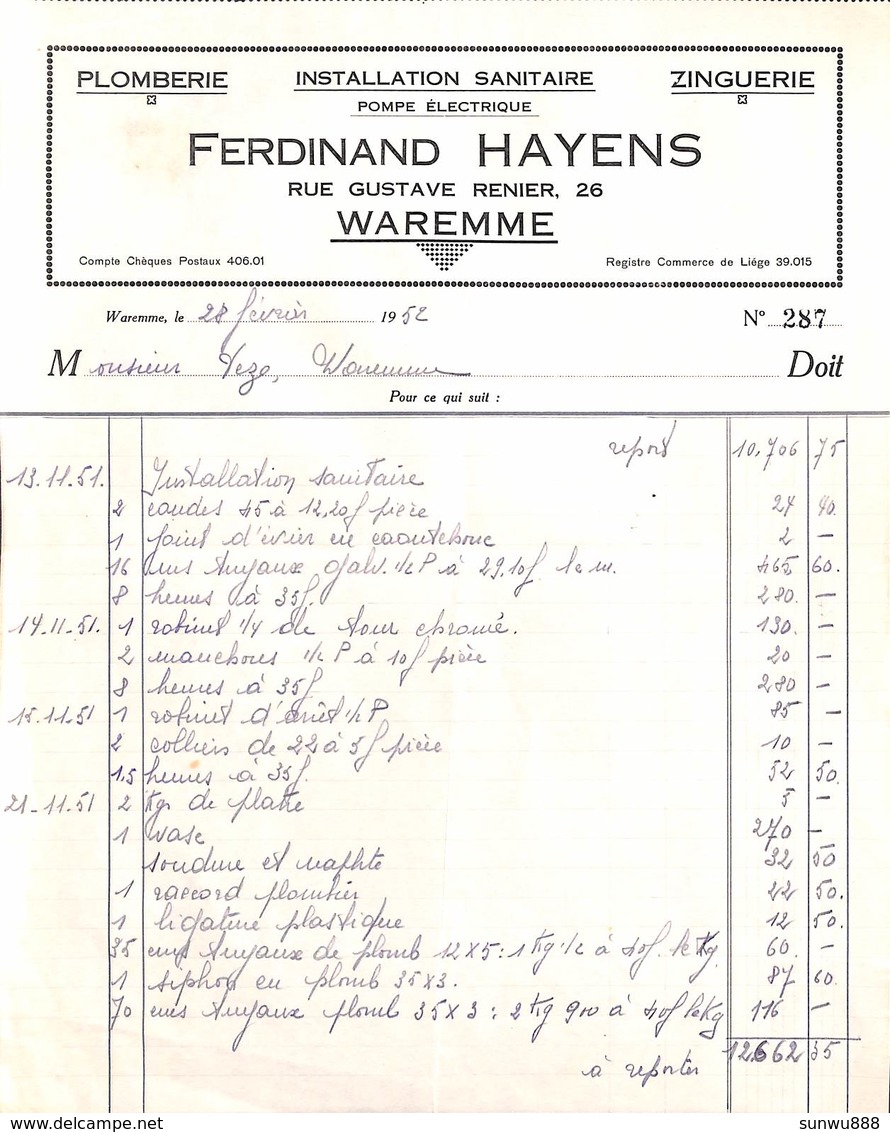 PLOMBERIE INSTALLATION SANITAIRE ZINGUERIE
POMPE ÉLECTRIQUE
FERDINAND HAYENS
RUE GUSTAVE RENIER, 26
WAREMME
Compte Chèques Postaux 406.01 Registre Commerce de Liége 39.015
Waremme, le 28 février 1952 N° 287
Monsieur Waremme Doit
Pour ce qui suit :
report 10,706 75
13.11.51. Installation sanitaire
2 coudes 45 à 12,20f pièce 24 40.
1 joint d'évier en caoutchouc 2 —
16 ms tuyaux galv. 1/2 P à 29.10f. le m. 465 60.
8 heures à 35f. 280. —
14-11-51. 1 robinet 1/4 de tour chromé. 130. —
2 manchons 1/2 P à 10f pièce 20 —
8 heures à 35f 280 —
15.11.51 1 robinet d'arrêt 1/2 P 85 —
2 colliers de 22 à 5f pièce 10 —
1.5 heures à 35f. 52 50.
21-11-51 2 Kgr de platre 5 —
1 vase 270 —
soudure et naphte 32 50
1 raccord plombier 22 50.
1 ligature plastique 12 50.
35 cms tuyaux de plomb 12 x 5 : 1 Kg 1/2 à 40f. le Kg 60. —
1 siphon en plomb 35 x 3. 87 60.
70 cms tuyaux plomb 35 x 3 : 2 Kg 900 à 40f le Kg 116 —
à reporter 12662 35
www.delcampe.net sunwu888